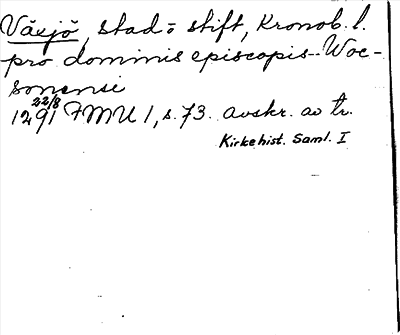 Växjö, stad o stift, Kronob. l.
pro dominis episcopis - Woe-
sonensi
22/8
1291 FMU 1, s. 73. avskr. av tr.
Kirkehist. Saml. I